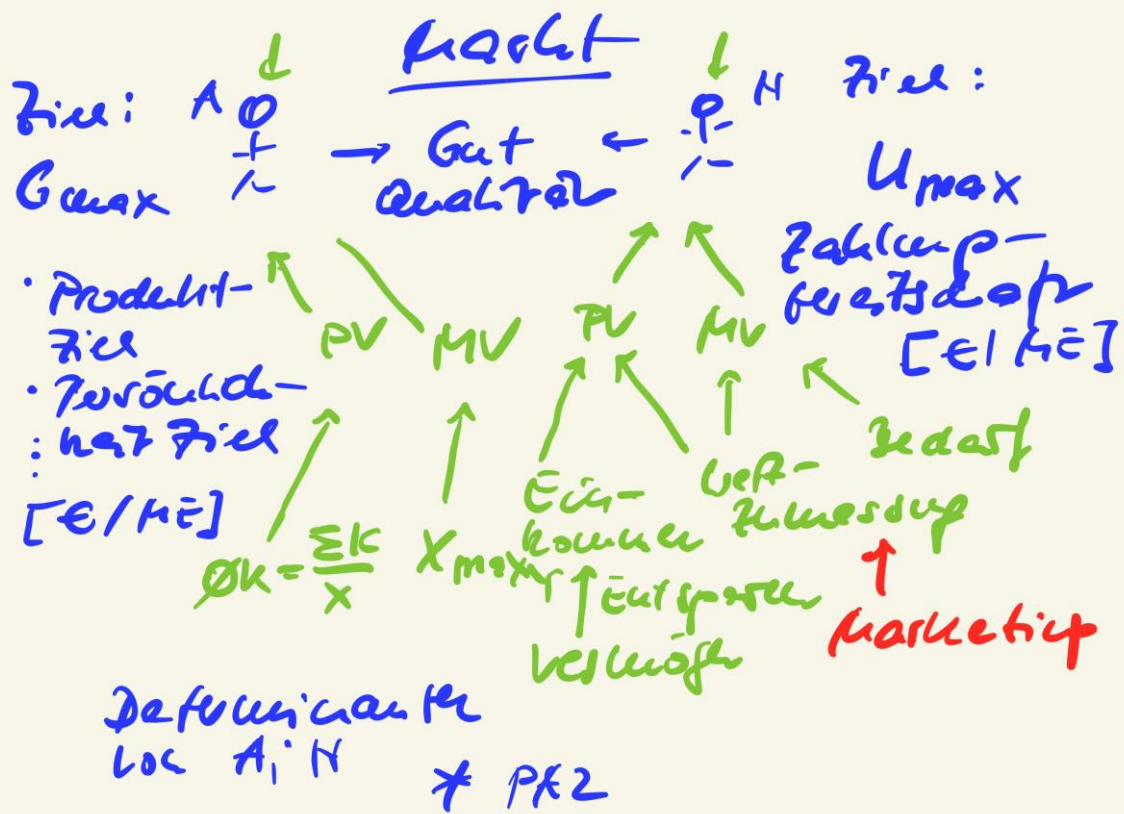 Markt
Ziel: A
N Ziel:
→ Gut ←
Qualität
Gmax
Umax
Zahlungs-
bereitschaft
[€/ME]
• Produkt-
ziel
• Persönlich-
keitsziel
[€/ME]
PV MV
PV MV
Bedarf
Ein-
kommen
Wert-
zumessung
ØK = ΣK/x
Xmax
Entsparen
Vermögen
Marketing
Determinanten
von A; N
* PK2